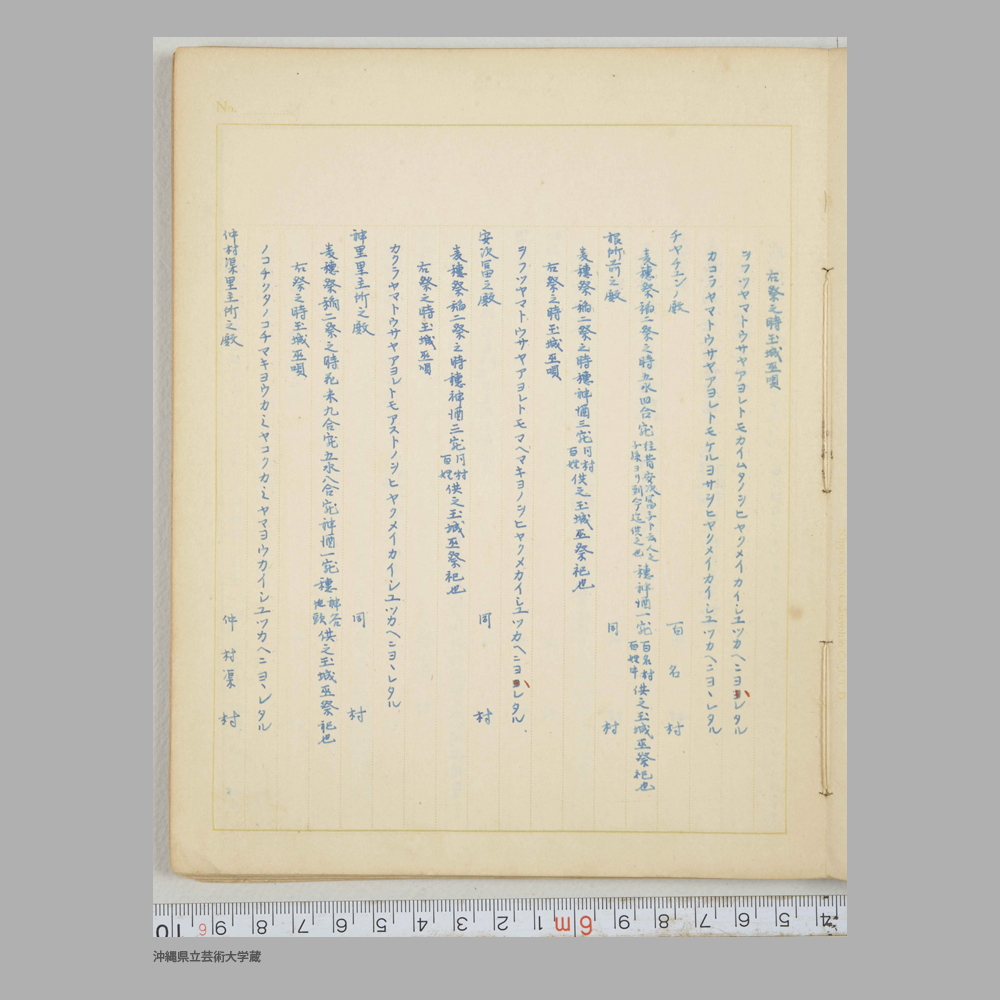 右祭之時玉城巫唄
ヲフツヤマトウサヤアヨレトモカイムタノシヒヤクメカイシユツカヘニヨヽレタル
カコラヤマトウサヤアヨレトモケルヨサシヒヤクメイカイシユツカヘニヨヽレタル
チヤチユンノ殿 百名村
麦穂祭稲二祭之時五水四合宛往昔安次富子ト云人之子孫ヨリ到今迄供之也穂神酒一宛百名村百姓中供之玉城巫祭祀也
根所前之殿 同村
麦穂祭稲二祭之時穂神酒三宛同村百姓供之玉城巫祭祀也
右祭之時玉城巫唄
ヲフツヤマトウサヤアヨレトモマヘマキヨノシヒヤクメカイシユツカヘニヨヽレタル
安次富之殿 同村
麦穂祭稲二祭之時穂神酒二宛同村百姓供之玉城巫祭祀也
右祭之時玉城巫唄
カクラヤマトウサヤアヨレトモアストノシヒヤクメイカイシユツカヘニヨヽレタル
神里里主所之殿 同村
麦穂祭稲二祭之時花米九合宛五水八合宛神酒一宛穂神谷地頭供之玉城巫祭祀也
右祭之時玉城巫唄
ノコチリタノコチマキヨウカミヤコクカミヤマヨウカイシユツカヘニヨヽレタル
仲村渠里主所之殿 仲村渠村
No.
10 9 8 7 6 5 4 3 2 1 6m 9 8 7 6 5 4
沖縄県立芸術大学蔵